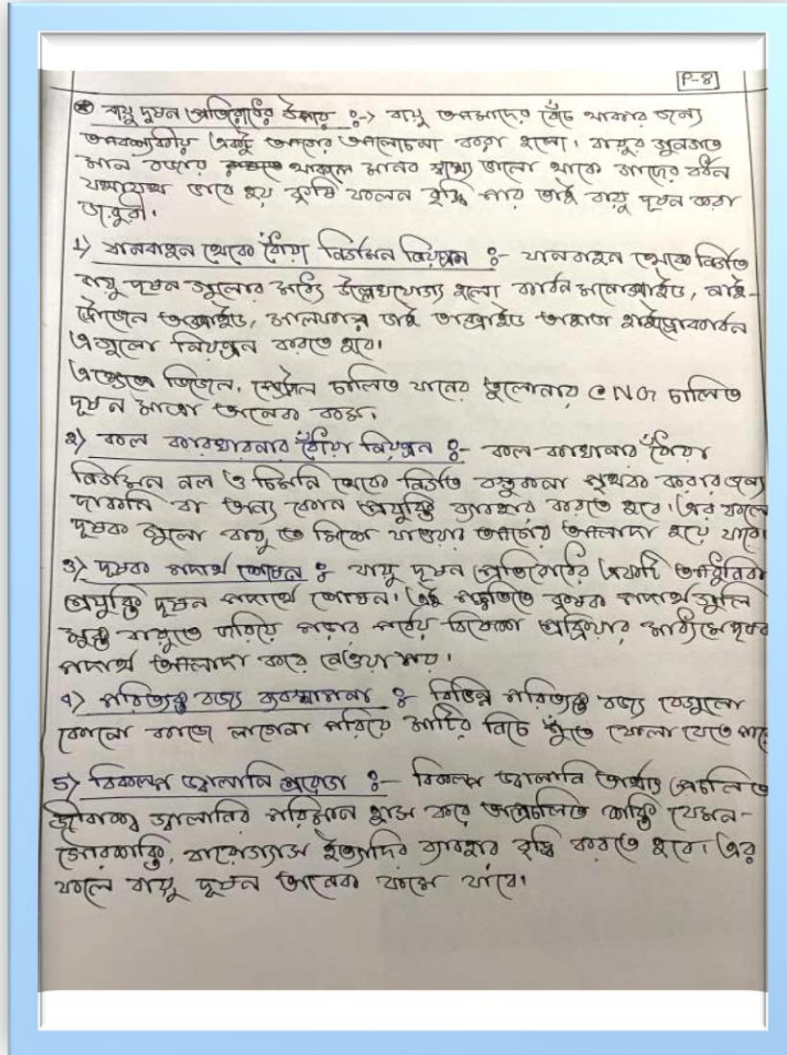 P-8
বায়ু দূষন প্রতিরোধের উপায় :-> বায়ু আমাদের বেঁচে থাকার জন্যে
আবশ্যকীয় একটু আগের আলোচনা করা হলো। বায়ুর গুনগত
মান বজায় থাকলে মানব স্বাস্থ্য ভালো থাকে তাদের বর্ধন
যথাযথ ভাবে হয় কৃষি ফলন বৃদ্ধি পায় তাই বায়ু দূষন করা
জরুরী।
১) যানবাহন থেকে ধোঁয়া নির্গমন নিয়ন্ত্রন :- যানবাহন থেকে নির্গত
বায়ু দূষন গুলোর মধ্যে উল্লেখযোগ্য হলো কার্বন মনোক্সাইড, নাই-
ট্রোজেন অক্সাইড, সালফার ডাই অক্সাইড তাছাড়া হাইড্রোকার্বন
এগুলো নিয়ন্ত্রন করতে হবে।
এক্ষেত্রে ডিজেল, পেট্রোল চালিত যানের তুলোনায় CNG চালিত
দূষন মাত্রা অনেক কম।
২) কল কারখানার ধোঁয়া নিয়ন্ত্রন :- কল কারখানার ধোঁয়া
নির্গমন নল ও চিমনি থেকে নির্গত বস্তুকনা পৃথক করার জন্য
বা অন্য কোন প্রযুক্তি ব্যাবহার করতে হবে। এর ফলে
দূষক গুলো বায়ু তে মিশে যাওয়ার আগেই আলাদা হয়ে যাবে।
৩) দূষক পদার্থ শোষন : বায়ু দূষন প্রতিরোধের একটি আধুনিক
প্রযুক্তি দূষন পদার্থ শোষন। এই পদ্ধতিতে দূষক পদার্থগুলি
মুক্ত বায়ুতে ছড়িয়ে পড়ার পূর্বেই বিশেষ প্রক্রিয়ার মাধ্যমে দূষক
পদার্থ আলাদা করে নেওয়া হয়।
৪) পরিত্যক্ত বজ্য ব্যবস্থাপনা : বিভিন্ন পরিত্যক্ত বজ্য যেগুলো
কোনো কাজে লাগেনা মাটির নিচে পুঁতে ফেলা যেতে পারে
5) বিকল্প জ্বালানি প্রয়োগ :- বিকল্প জ্বালানি অর্থাৎ প্রচলিত
জীবাশ্ম জ্বালানির পরিমান হ্রাস করে অপ্রচলিত শক্তি যেমন-
সৌরশক্তি, বায়োগ্যাস ইত্যাদির ব্যাবহার বৃদ্ধি করতে হবে। এর
ফলে বায়ু দূষন অনেক কমে যাবে।